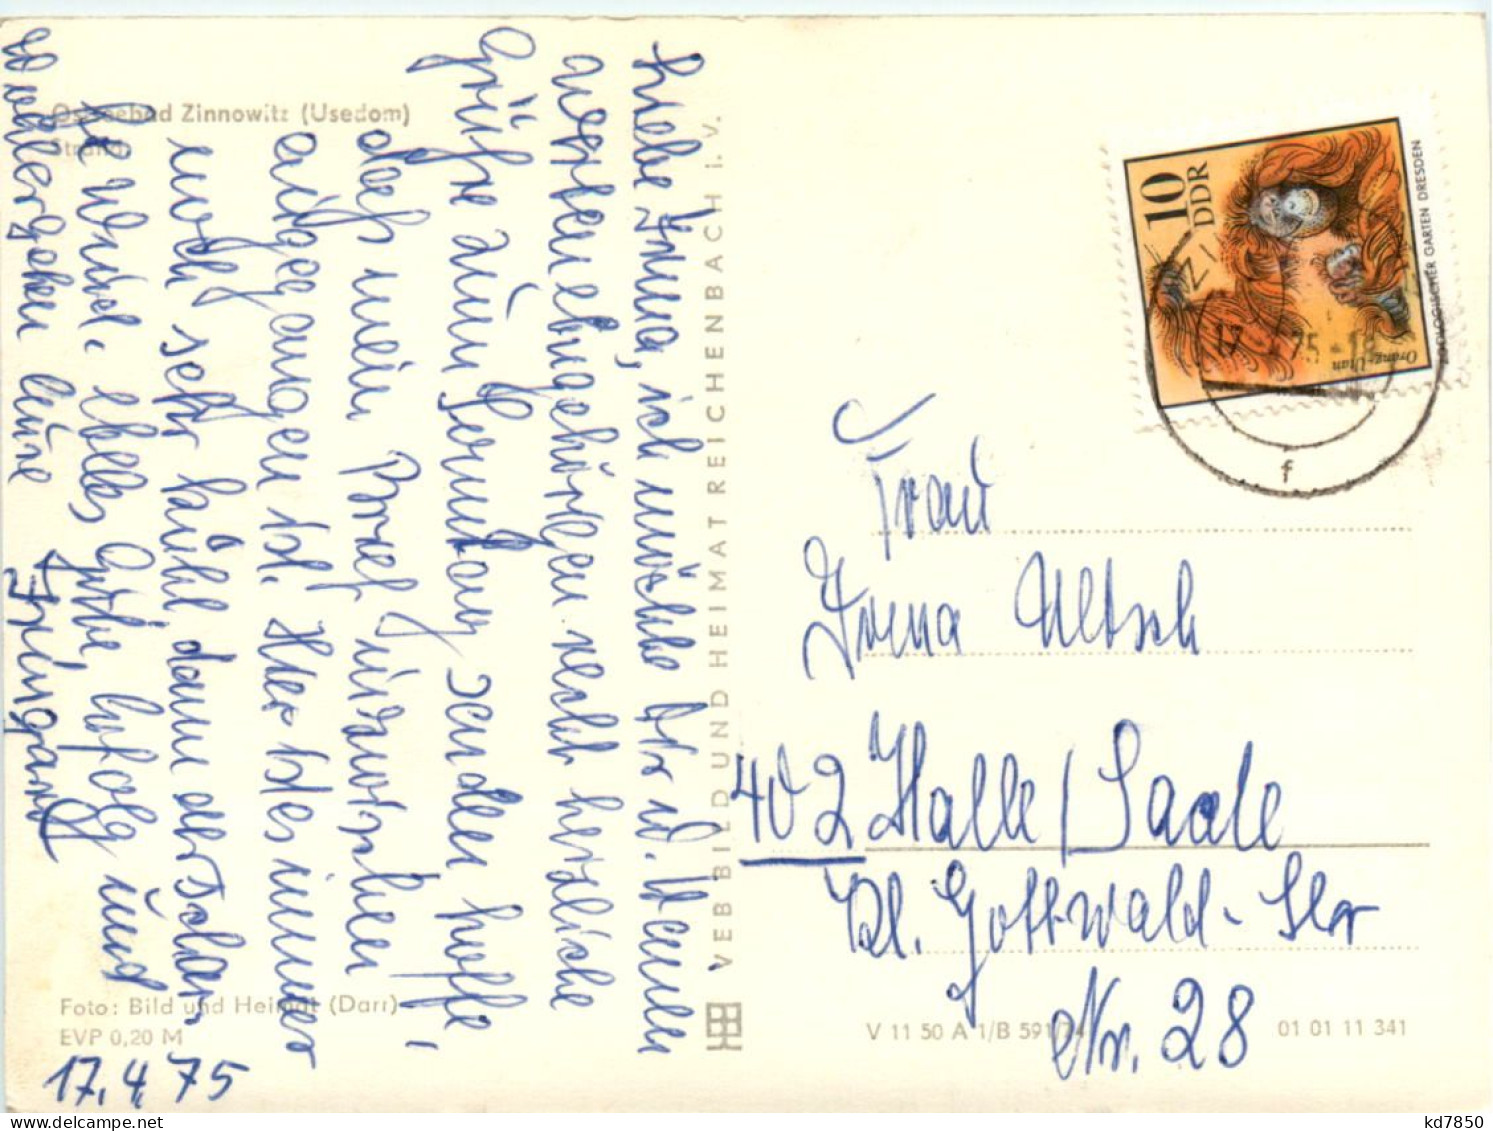 Ostseebad Zinnowitz (Usedom)
Strand
Liebe Irma, ich möchte Dir u. Deinen
werten Angehörigen recht herzliche
Grüße zum Sonntag senden hoffe,
daß mein Brief inzwischen
angekommen ist. Hier ist es immer
noch sehr kühl, dann
der Wind. alles Gute, Erfolg und
Wohlergehen Eure
Irmgard
17.4.75
Foto: Bild und Heimat (Darr)
EVP 0,20 M
VEB BILD UND HEIMAT REICHENBACH I. V.
10
DDR
Orang-Utan
ZOOLOGISCHER GARTEN DRESDEN
17
75-18
f
Frau
Irma Ultsch
402 Halle / Saale
Kl. Gottwald-Str
Nr. 28
V 11 50 A 1/B 591/74
01 01 11 341
kd7850